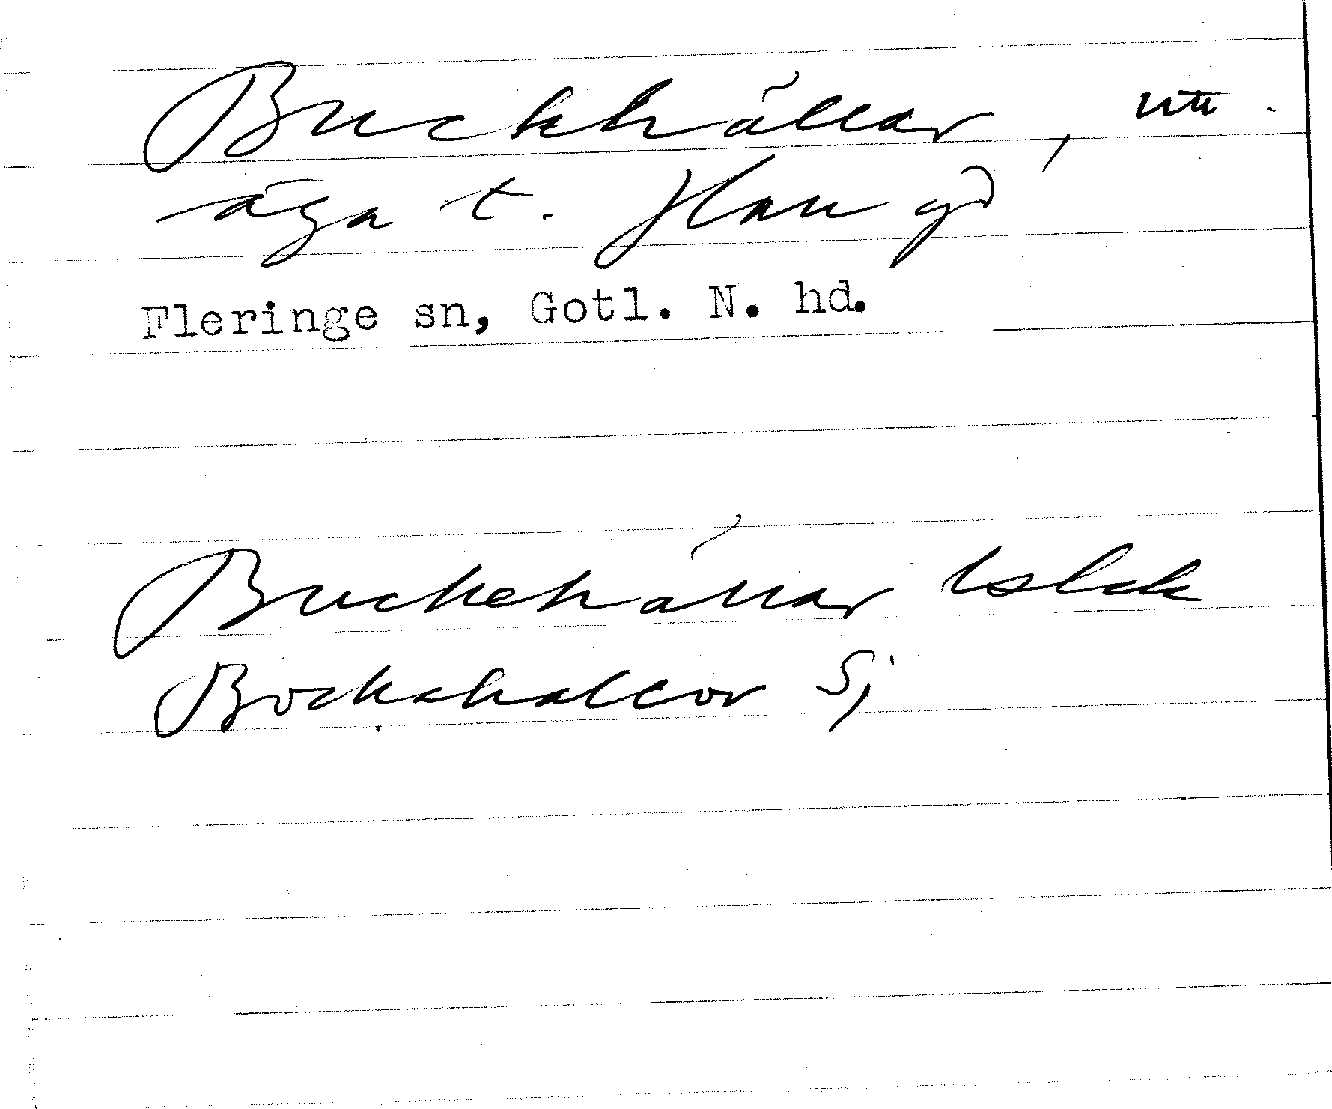 Buckhällar, utt.
äga t. Hau gd
Fleringe sn, Gotl. N. hd.
Buckehällar
Bockahallor Sj